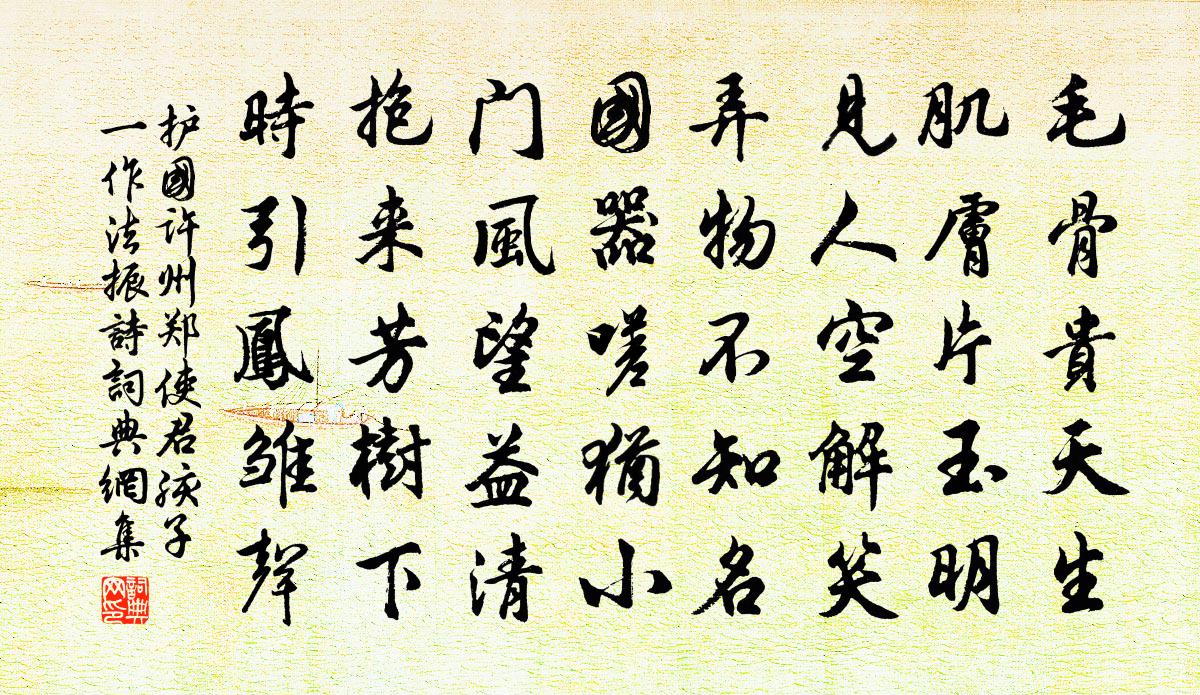 毛骨貴天生
肌膚片玉明
見人空解笑
弄物不知名
國器嗟猶小
门風望益清
抱来芳樹下
時引鳳雛聲
护國許州郑使君孩子
一作法振詩詞典網集
詞典网印